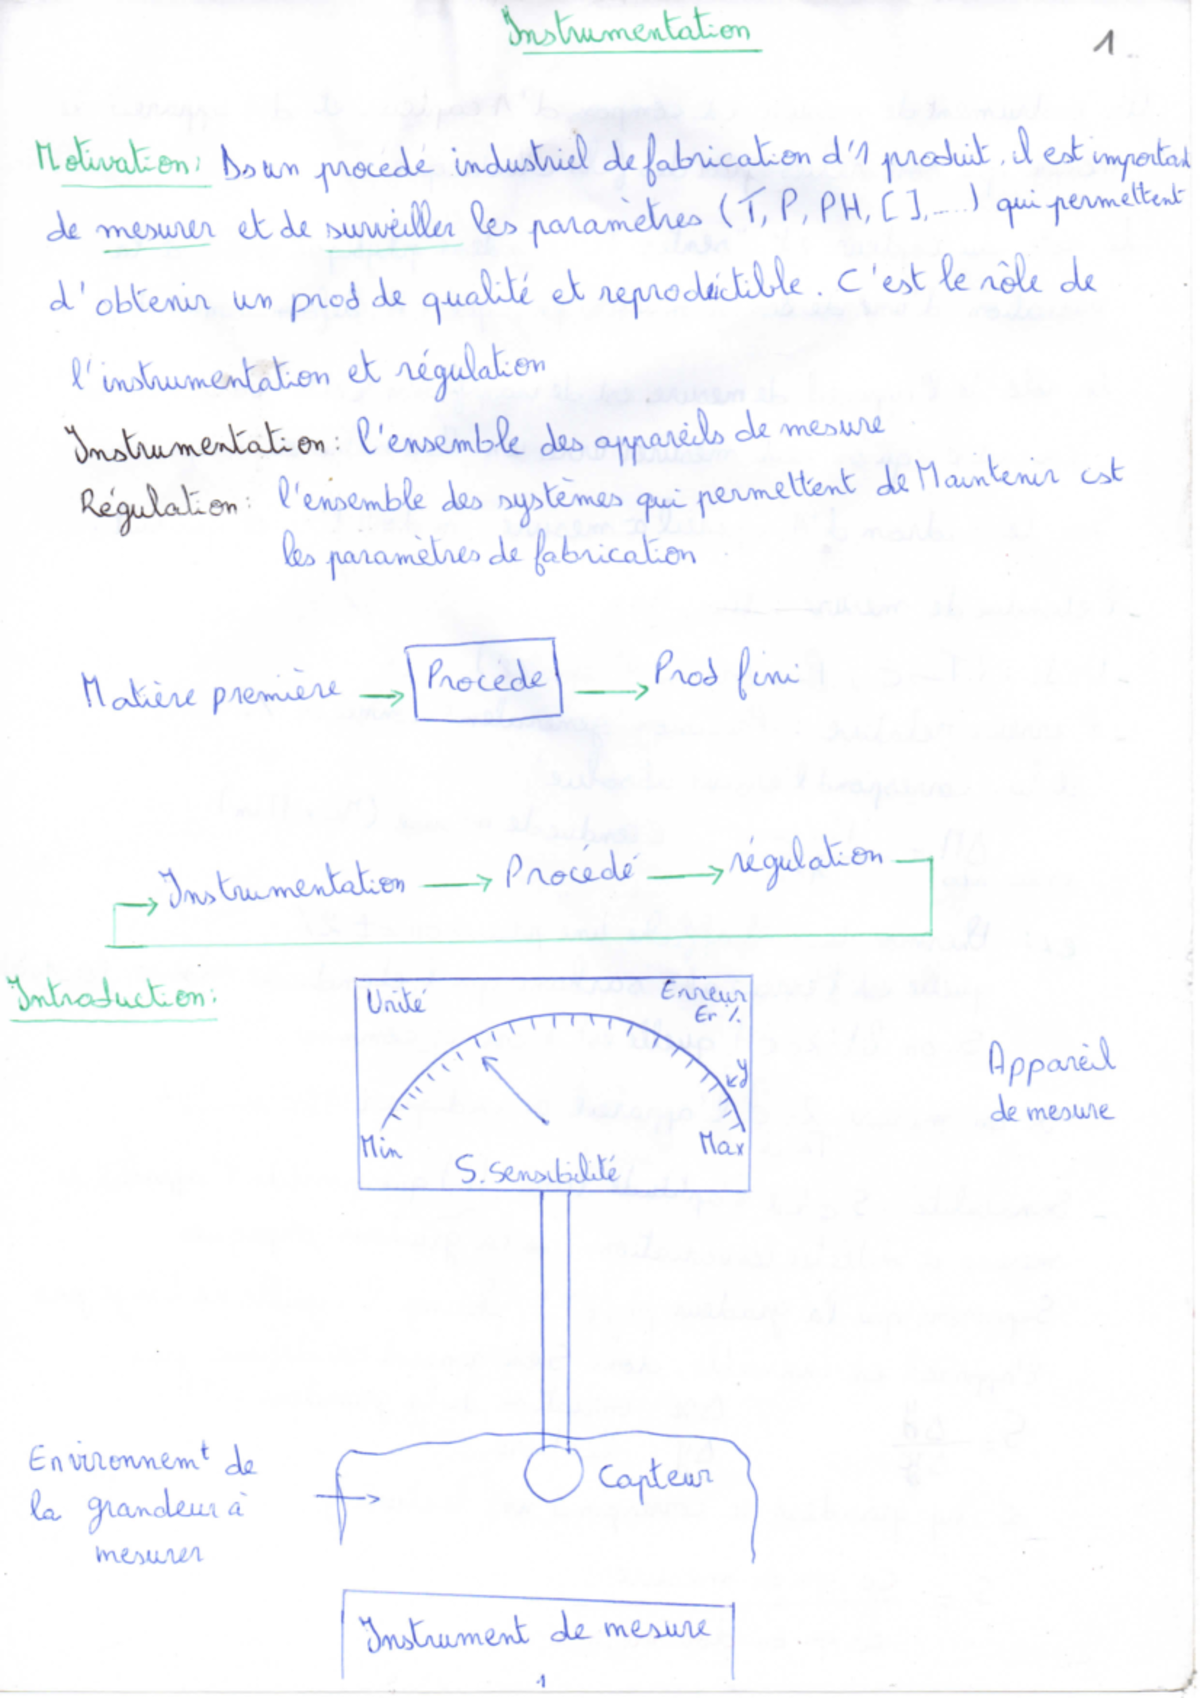 Instrumentation
1
Motivation: Ds un procédé industriel de fabrication d'1 produit, il est important
de mesurer et de surveiller les paramètres (T, P, PH, [ ], ....) qui permettent
d'obtenir un prod de qualité et reproductible. C'est le rôle de
l'instrumentation et régulation
Instrumentation: l'ensemble des appareils de mesure
Régulation: l'ensemble des systèmes qui permettent de Maintenir cst
les paramètres de fabrication
Matière première → Procédé → Prod fini
Instrumentation → Procédé → régulation
Introduction:
Unité
Erreur
Er %
y
Min
Max
S. Sensibilité
Appareil
de mesure
Environnemt de
la grandeur à
mesurer
Capteur
Instrument de mesure
1